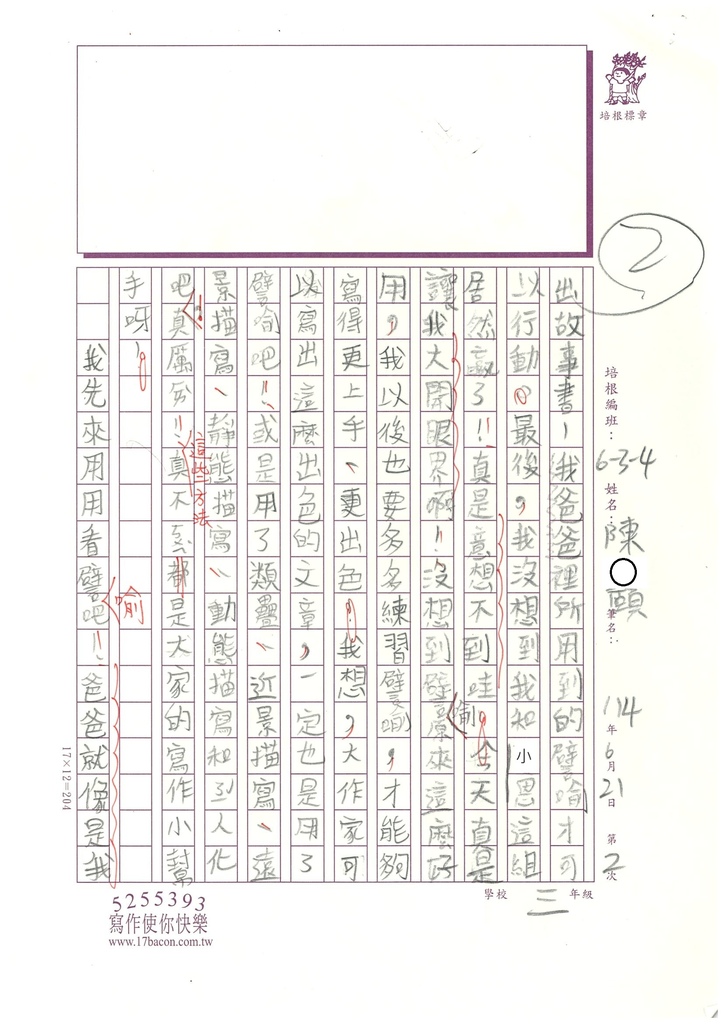 培根標章
2
培根編班：6-3-4
姓名：陳○頤
筆名：
114年6月21日 第2次
學校 三年級
出故事書，我爸爸裡所用到的譬喻才可
以行動。最後，我沒想到我和小思這組
居然贏了！！真是意想不到哇。今天真是
讓我大開眼界啊！！沒想到譬喻原來這麼好
制
用，我以後也要多多練習譬喻，才能夠
寫得更上手、更出色。我想，大作家可
以寫出這麼出色的文章，一定也是用了
譬喻吧！！或是用了類疊、近景描寫、遠
景描寫、靜態描寫、動態描寫和擬人化
這些方法
吧！真厲害！！真不愧都是大家的寫作小幫
手呀！。
我先來用用看譬吧！！爸爸就像是我
喻
17×12=204
5255393
寫作使你快樂
www.17bacon.com.tw